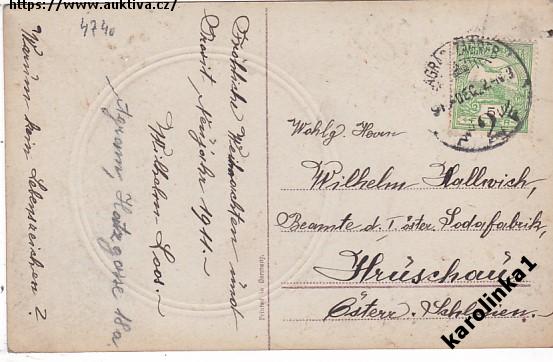 https://www.auktiva.cz/
4740
Fröhliche Weihnachten und
Prosit Neujahr 1911.-
Wilhelm Loos.-
Agram, Hatzgasse 18a
Warum kein Lebenszeichen?
Printed in Germany.
AGRAM ZÁGRÁB
5
Wohlg. Herrn
Wilhelm Kallwich,
Beamte d. I öster. Sodafabrik,
Hruschau
Österr. Schlesien.
karolinka1